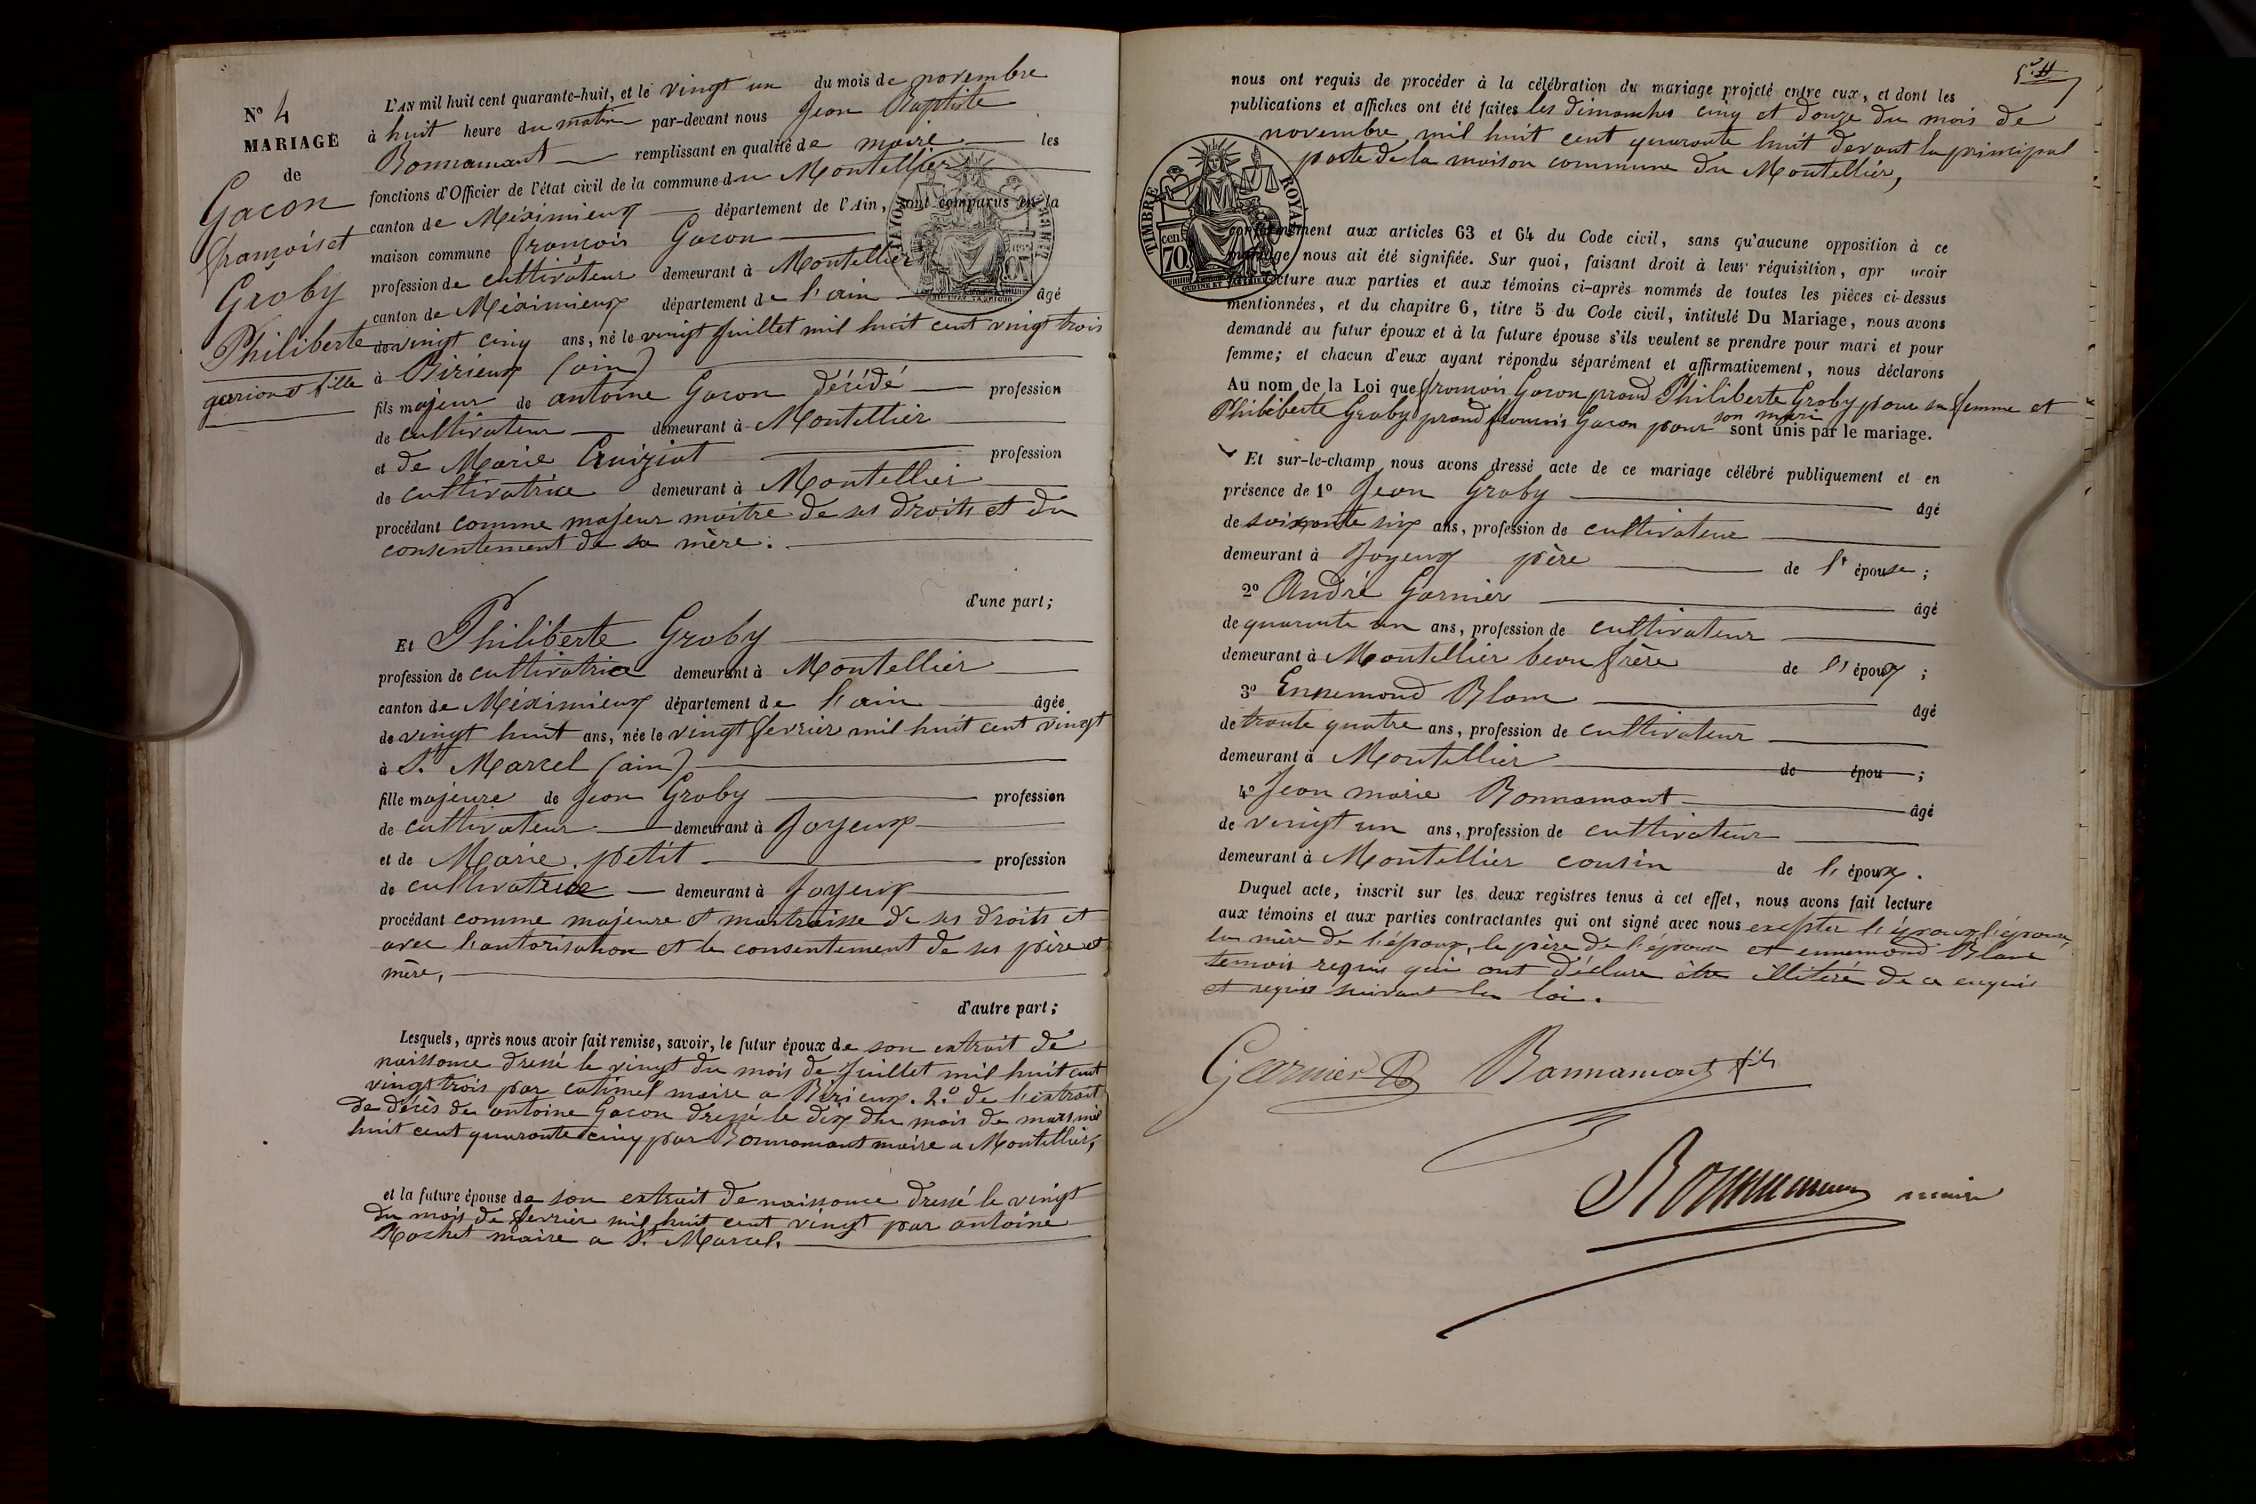 N° 4
MARIAGE
de
Gacon
françois et
Groby
Philiberte
garcon et fille
L'AN mil huit cent quarante-huit, et le vingt un du mois de novembre
à huit heure du matin par-devant nous Jean Baptiste
Bonnamant remplissant en qualité de maire les
fonctions d'Officier de l'état civil de la commune du Montellier
canton de Méximieux département de l'Ain, sont comparus en la
maison commune françois Gacon
profession de cultivateur demeurant à Montellier
canton de Méximieux département de l'ain âgé
de vingt cinq ans, né le vingt Juillet mil huit cent vingt trois
à Birieux (ain)
fils majeur de antoine Gacon décédé profession
de cultivateur demeurant à Montellier
et de Marie Cruiziat profession
de cultivatrice demeurant à Montellier
procédant comme majeur maitre de ses droits et du
consentement de sa mère.
d'une part;
Et Philiberte Groby
profession de cultivatrice demeurant à Montellier
canton de Méximieux département de l'ain âgée
de vingt huit ans, née le vingt fevrier mil huit cent vingt
à St. Marcel (ain)
fille majeure de Jean Groby profession
de cultivateur demeurant à Joyeux
et de Marie petit profession
de cultivatrice demeurant à Joyeux
procédant comme majeure et maitraisse de ses droits et
avec l'autorisation et le consentement de ses père et
mère,
d'autre part;
Lesquels, après nous avoir fait remise, savoir, le futur époux de son extrait de
naissance dressé le vingt du mois de Juillet mil huit cent
vingt trois par catimel maire a Birieux. 2.° de l'extrait
de décès de antoine Gacon dressé le dix du mois de mars mil
huit cent quaronte cinq par Bonnamant maire a Montellier,
et la future épouse de son extrait de naissance dressé le vingt
du mois de fevrier mil huit cent vingt par antoine
Rochet maire a St. Marcel.
nous ont requis de procéder à la célébration du mariage projeté entre eux, et dont les
publications et affiches ont été faites les dimanches cinq et douze du mois de
novembre mil huit cent quaronte huit devant la principal
porte de la maison commune du Montellier,
TIMBRE ROYAL
70
conformément aux articles 63 et 64 du Code civil, sans qu'aucune opposition à ce
mariage nous ait été signifiée. Sur quoi, faisant droit à leur réquisition, apr avoir
lecture aux parties et aux témoins ci-après nommés de toutes les pièces ci-dessus
mentionnées, et du chapitre 6, titre 5 du Code civil, intitulé Du Mariage, nous avons
demandé au futur époux et à la future épouse s'ils veulent se prendre pour mari et pour
femme; et chacun d'eux ayant répondu séparément et affirmativement, nous déclarons
Au nom de la Loi que françois Gacon prend Philiberte Groby pour sa femme et
Philiberte Groby prend francois Gacon pour son mari sont unis par le mariage.
Et sur-le-champ nous avons dressé acte de ce mariage célébré publiquement et en
présence de 1° Jean Groby âgé
de soixante six ans, profession de cultivateur
demeurant à Joyeux père de l' épouse;
2° André Garnier âgé
de quaronte un ans, profession de cultivateur
demeurant à Montellier beau frère de l' époux;
3° Ennemond Blanc âgé
de trante quatre ans, profession de cultivateur
demeurant à Montellier de épou ;
4° Jean marie Bonnamant âgé
de vingt un ans, profession de cultivateur
demeurant à Montellier cousin de l' époux.
Duquel acte, inscrit sur les deux registres tenus à cet effet, nous avons fait lecture
aux témoins et aux parties contractantes qui ont signé avec nous excepter l'époux l'épouse,
la mère de l'époux, le père de l'épouse et ennemond Blanc
temoin requis qui ont déclare être illitéré de ce enquis
et requis suivant la loi.
Garnier Bonnamant fils
Bonnamant maire